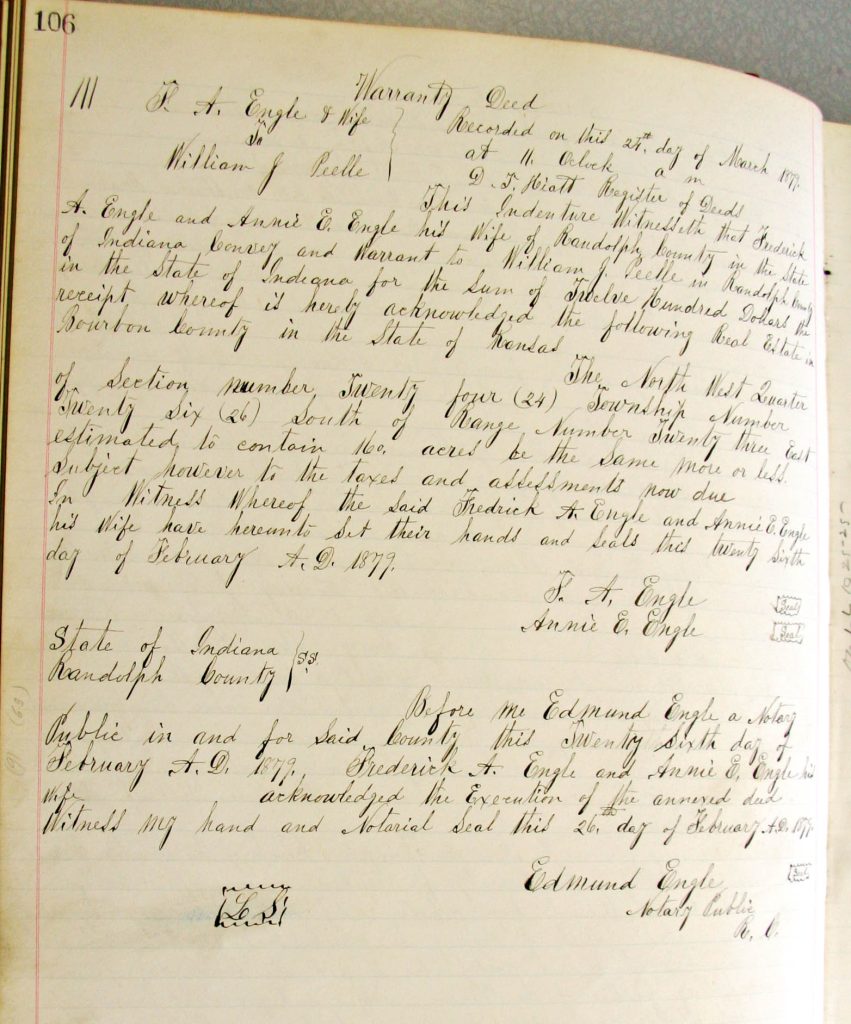 106
Warranty Deed
111 F. A. Engle & Wife
To
William J Peelle
Recorded on this 24th day of March 1879.
at 11. Oclock a m
D. T. Hiatt Register of Deeds
This Indenture Witnesseth that Frederick
A. Engle and Annie E. Engle his Wife of Randolph County in the State
of Indiana Convey and Warrant to William J. Peelle in Randolph County
in the State of Indiana for the Sum of Twelve Hundred Dollars the
receipt whereof is hereby acknowledged the following Real Estate in
Bourbon County in the State of Kansas
The North West Quarter
of Section number Twenty four (24) Township Number
Twenty Six (26) South of Range Number Twenty three East
estimated to contain 160. acres be the Same more or less.
Subject however to the taxes and assessments now due
In Witness Whereof the Said Fredrick A. Engle and Annie E. Engle
his Wife have hereunto Set their hands and Seals this twenty Sixth
day of February A.D. 1879.
F. A. Engle Seal
Annie E. Engle Seal
State of Indiana
Randolph County } S.S.
Before me Edmund Engle a Notary
Public in and for Said County this Twenty Sixth day of
February A.D. 1879. Frederick A. Engle and Annie E. Engle his
Wife acknowledged the Execution of the annexed deed
Witness my hand and Notarial Seal this 26th day of February A.D. 1879.
Edmund Engle Seal
L S
Notary Public
R. C.